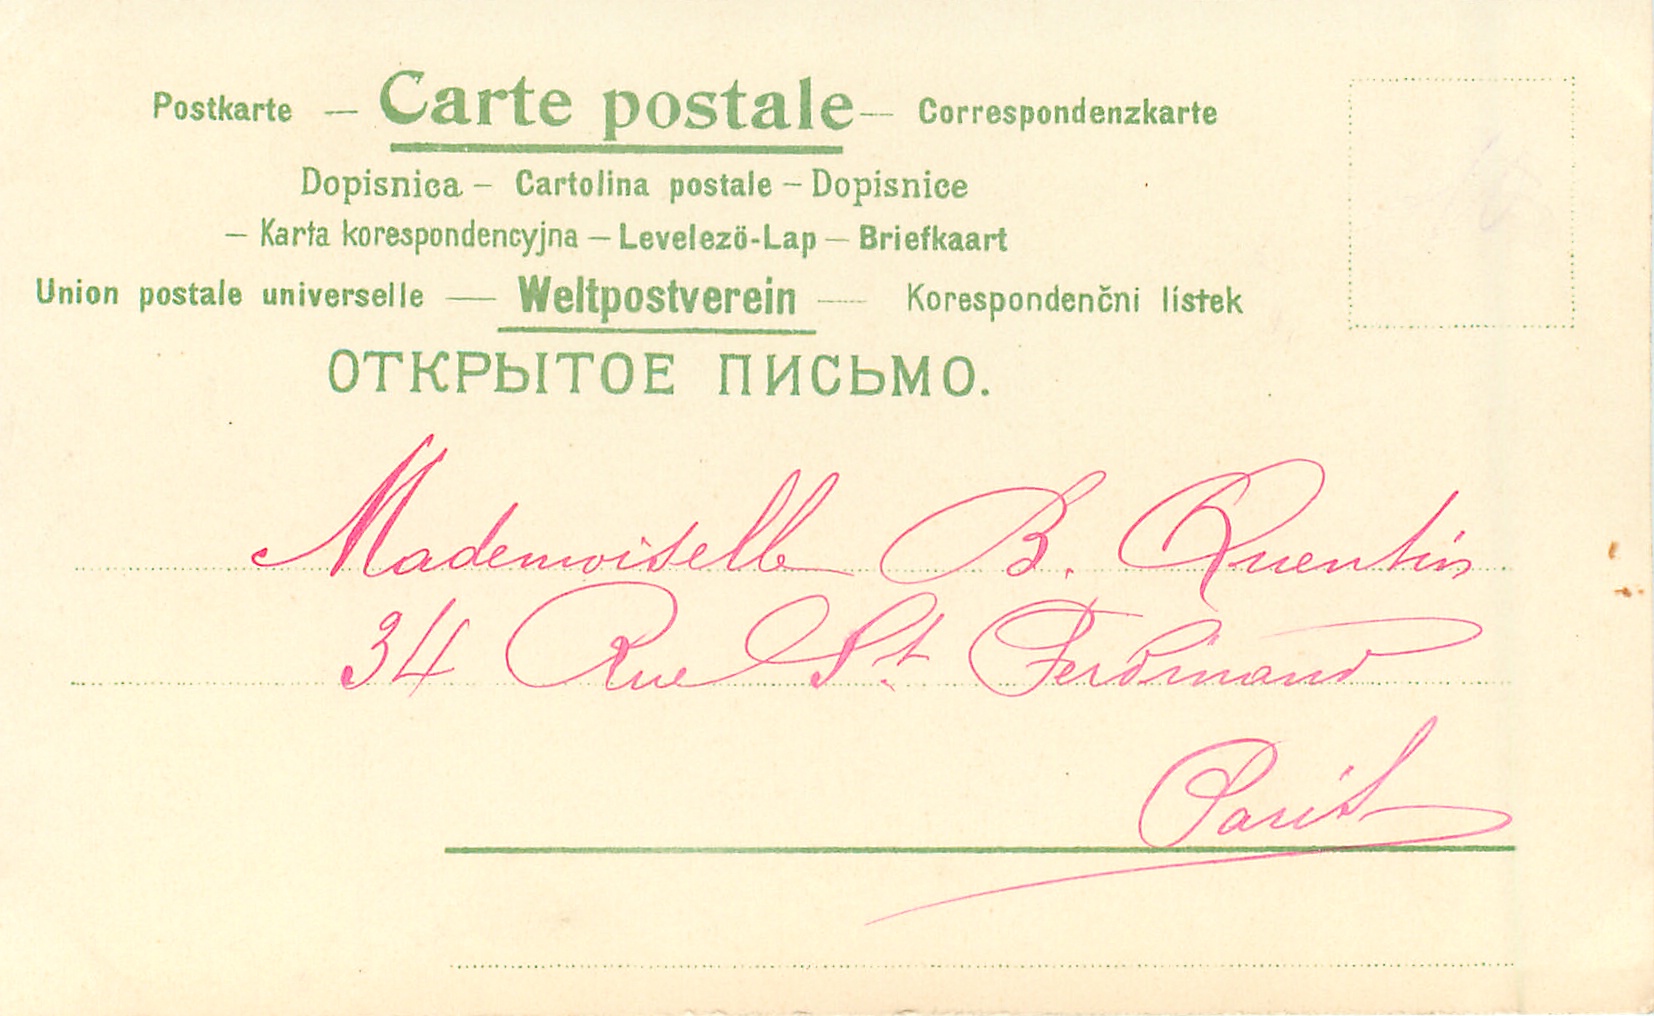 Postkarte — Carte postale — Correspondenzkarte
Dopisnica — Cartolina postale — Dopisnice
— Karta korespondencyjna — Levelezö-Lap — Briefkaart
Union postale universelle — Weltpostverein — Korespondenčni lístek
ОТКРЫТОЕ ПИСЬМО.
Mademoiselle B. Quentin
34 Rue St. Ferdinand
Paris